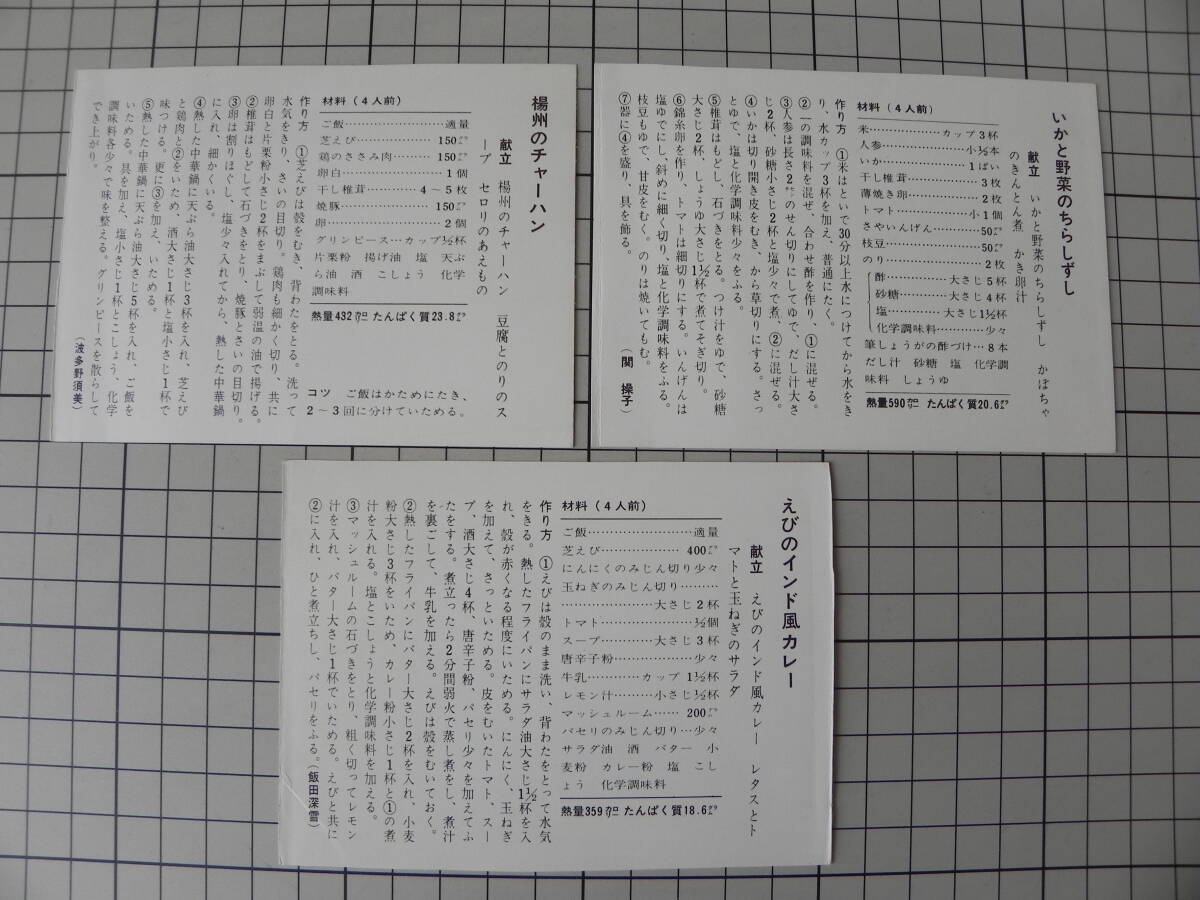 いかと野菜のちらしずし
献立 いかと野菜のちらしずし かぼちゃ
のきんとん煮 かき卵汁
材料(4人前)
米……………カップ3杯
人参……………小⅓本
いか……………1ぱい
干し椎茸……………3枚
薄焼き卵……………2枚
トマト……………小1個
さやいんげん………50㌘
枝豆……………50㌘
のり……………2枚
酢………大さじ5杯
砂糖………大さじ4杯
塩………大さじ1½杯
化学調味料………少々
筆しょうがの酢づけ…8本
だし汁 砂糖 塩 化学調
味料 しょうゆ
熱量590㌍ たんぱく質20.6㌘
作り方 ①米はといで30分以上水につけてから水をき
り、水カップ3杯を加え、普通にたく。
②  の調味料を混ぜ、合わせ酢を作り、①に混ぜる。
③人参は長さ2㌢のせん切りにしてゆで、だし汁大さ
じ2杯、砂糖小さじ2杯と塩少々で煮、②に混ぜる。
④いかは切り開き皮をむき、から草切りにする。さっ
とゆで、塩と化学調味料少々をふる。
⑤椎茸はもどし、石づきをとる。つけ汁をゆで、砂糖
大さじ2杯、しょうゆ大さじ1½杯で煮てそぎ切り。
⑥錦糸卵を作り、トマトは細切りにする。いんげんは
塩ゆでにし、斜めに細く切り、塩と化学調味料をふる。
枝豆もゆで、甘皮をむく。のりは焼いてもむ。
⑦器に④を盛り、具を飾る。
(関 操子)
揚州のチャーハン
献立 揚州のチャーハン 豆腐とのりのス
ープ セロリのあえもの
材料(4人前)
ご飯……………適量
芝えび……………150㌘
鶏のささみ肉………150㌘
卵白……………1個
干し椎茸………4〜5枚
焼豚……………150㌘
卵……………2個
グリンピース…カップ½杯
片栗粉 揚げ油 塩 天ぷ
ら油 酒 こしょう 化学
調味料
熱量432㌍ たんぱく質23.8㌘
コツ ご飯はかためにたき、
2〜3回に分けていためる。
作り方 ①芝えびは殻をむき、背わたをとる。洗って
水気をきり、さいの目切り。鶏肉も細かく切り、共に
卵白と片栗粉小さじ2杯をまぶして弱温の油で揚げる。
②椎茸はもどして石づきをとり、焼豚とさいの目切り。
③卵は割りほぐし、塩少々入れてから、熱した中華鍋
に入れ、細かくいる。
④熱した中華鍋に天ぷら油大さじ3杯を入れ、芝えび
と鶏肉と②をいため、酒大さじ1杯と塩小さじ1杯で
味つける。更に③を加え、いためる。
⑤熱した中華鍋に天ぷら油大さじ5杯を入れ、ご飯を
いためる。具を加え、塩小さじ1杯とこしょう、化学
調味料各少々で味を整える。グリンピースを散らして
でき上がり。
(波多野須美)
えびのインド風カレー
献立 えびのインド風カレー レタスとト
マトと玉ねぎのサラダ
材料(4人前)
ご飯……………適量
芝えび……………400㌘
にんにくのみじん切り少々
玉ねぎのみじん切り………
……………大さじ2杯
トマト……………½個
スープ………大さじ3杯
唐辛子粉……………少々
牛乳………カップ1½杯
レモン汁………小さじ½杯
マッシュルーム……200㌘
パセリのみじん切り…少々
サラダ油 酒 バター 小
麦粉 カレー粉 塩 こし
ょう 化学調味料
熱量359㌍ たんぱく質18.6㌘
作り方 ①えびは殻のまま洗い、背わたをとって水気
をきる。熱したフライパンにサラダ油大さじ1½杯を入
れ、殻が赤くなる程度にいためる。にんにく、玉ねぎ
を加えて、さっといためる。皮をむいたトマト、スー
プ、酒大さじ4杯、唐辛子粉、パセリ少々を加えてふ
たをする。煮立ったら2分間弱火で蒸し煮をし、煮汁
を裏ごして、牛乳を加える。えびは殻をむいておく。
②熱したフライパンにバター大さじ2杯を入れ、小麦
粉大さじ3杯をいため、カレー粉小さじ1杯と①の煮
汁を入れる。塩とこしょうと化学調味料を加える。
③マッシュルームの石づきをとり、粗く切ってレモン
汁を入れ、バター大さじ1杯でいためる。えびと共に
②に入れ、ひと煮立ちし、パセリをふる。(飯田深雪)